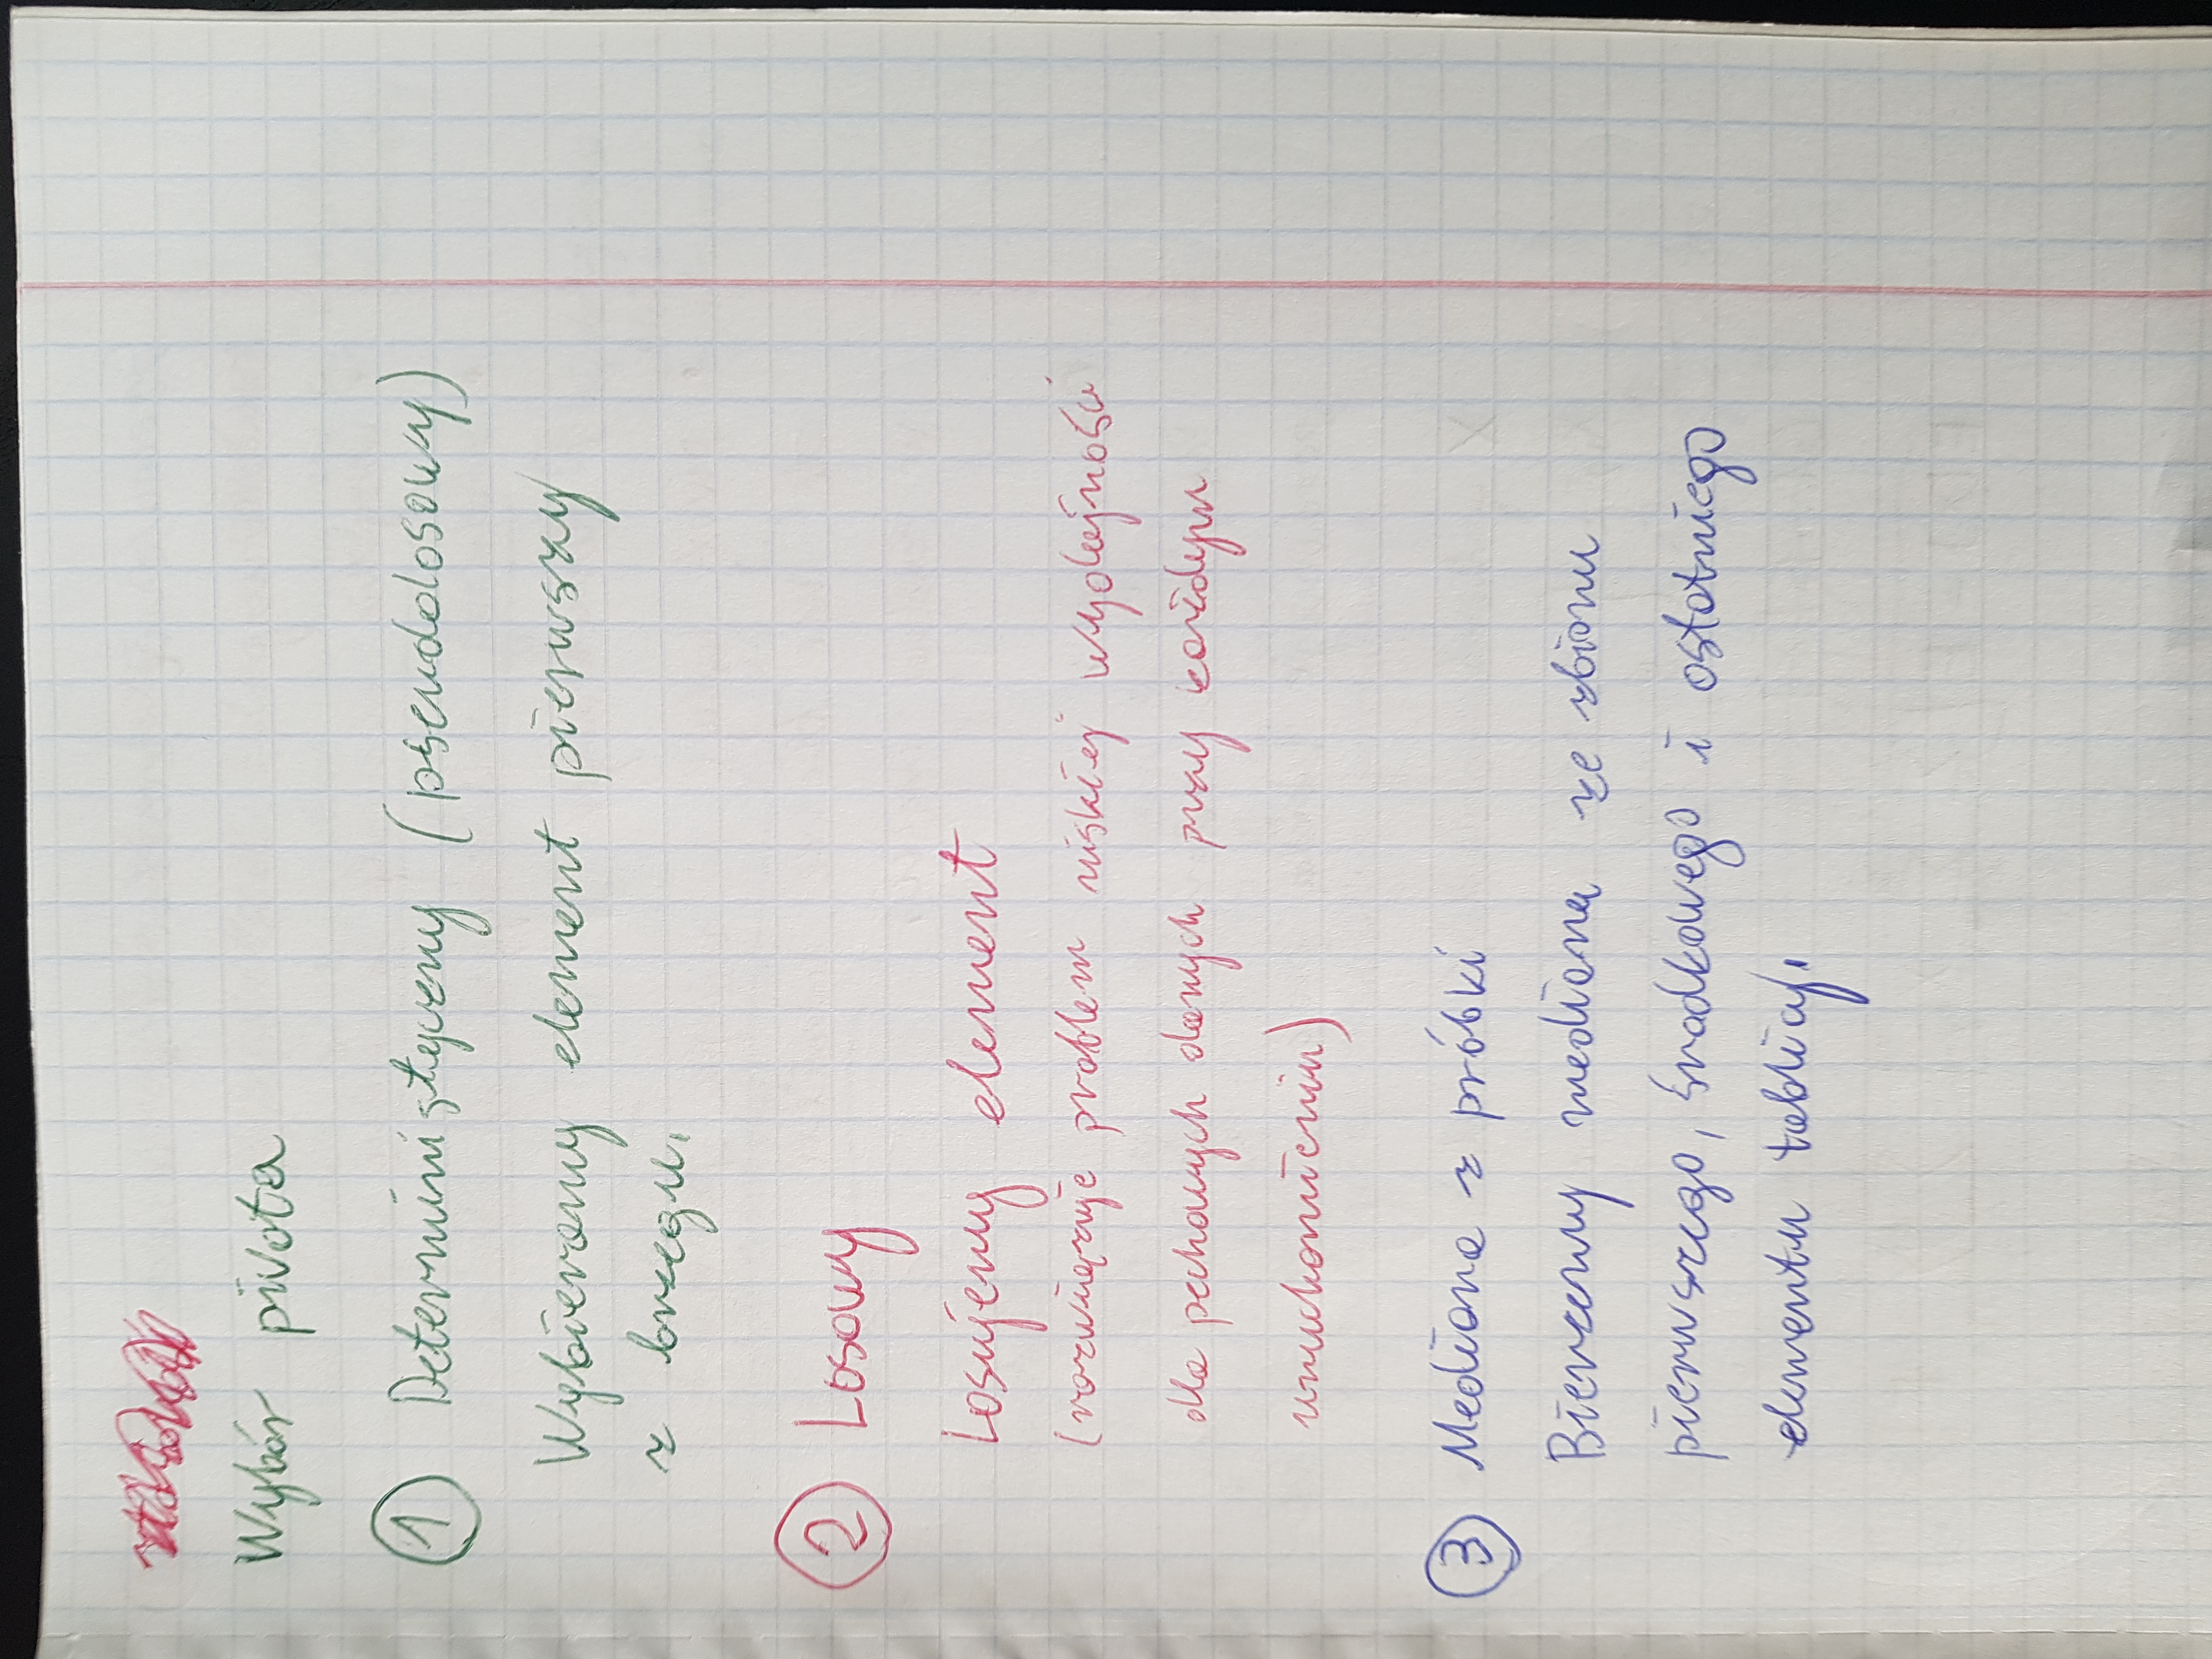 Wybór pivota
1 Deterministyczny (pseudolosowy)
Wybieramy element pierwszy
z brzegu.
2 Losowy
Losujemy element
(rozwiązuje problem niskiej wydajności
dla pechowych danych przy każdym
uruchomieniu)
3 Mediana z próbki
Bierzemy medianę ze zbioru
pierwszego, środkowego i ostatniego
elementu tablicy.